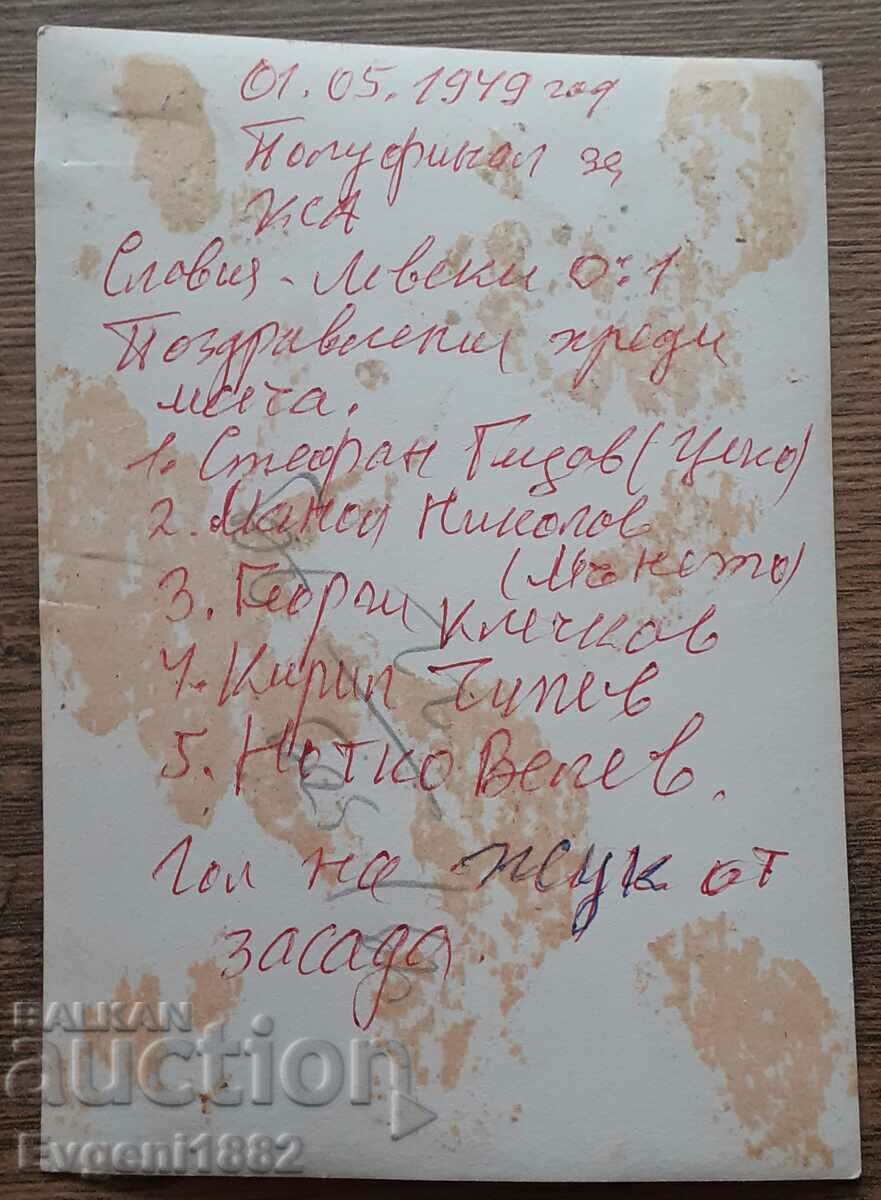 01.05.1949 год
Полуфинал за
КСА
Славия - Левски 0:1
Поздравления преди
мача.
1. Стефан Гидов (Цеко)
2. Манол Николов
(Мънето)
3. Георги Клечков
4. Кирил Чипев
5. Нотко Велев.
Гол на Жук от
засада.
BALKAN
auction
Evgeni1882